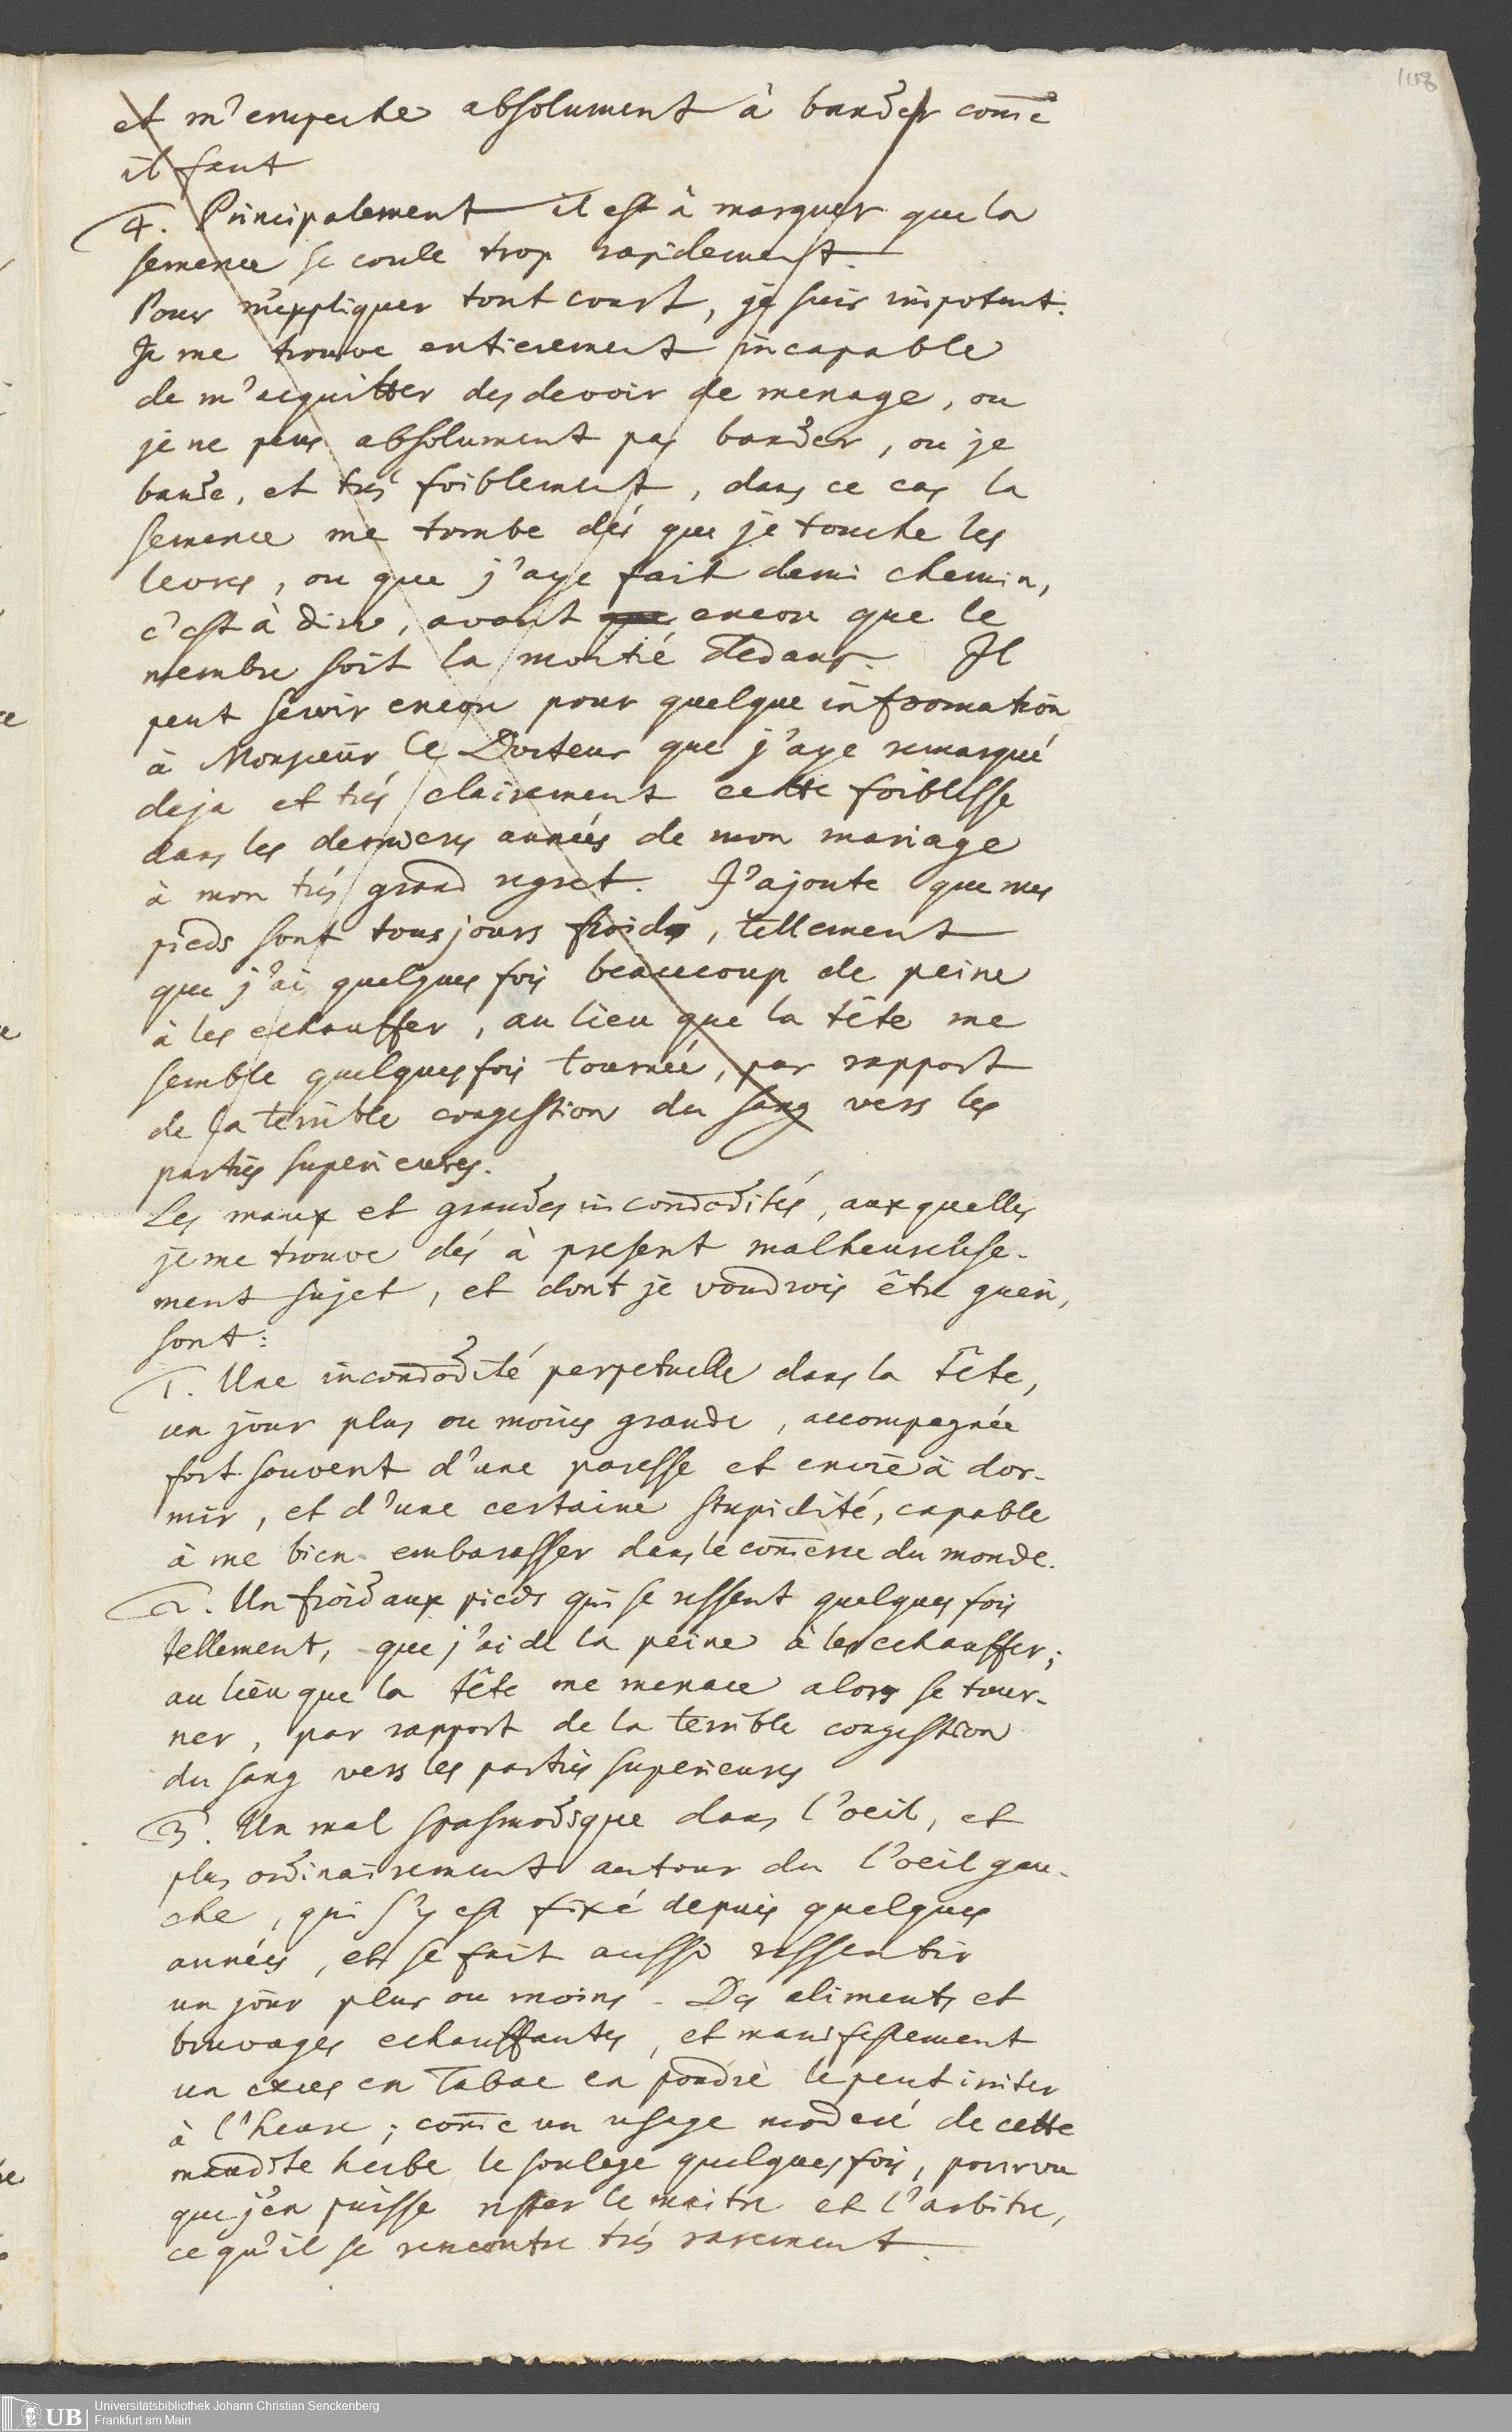 108
et m'empeche absolument à bander com̄e
il faut
4. Principalement il est à marquer que la
semence se coule trop rapidement.
Pour m'expliquer tout court, je suis impotent.
Je me trouve entierement incapable
de m'acquitter des devoir de menage, ou
je ne peus absolument pas bander, ou je
bande, et trés foiblement, dans ce cas la
semence me tombe dés que je touche les
levres, ou que j'aye fait demi chemin,
c'est à dire, avant que encore que le
membre soit la moitié dedans. Il
peut servir encore pour quelque information
à Monsieur le Docteur que j'aye remarqué
deja et trés clairement cette foiblesse
dans les derniers années de mon mariage
à mon trés grand regret. J'ajoute que mes
pieds sont tousjours froids, tellement
que j'ai quelques fois beaucoup de peine
à les echauffer, au lieu que la tête me
semble quelques fois tournée, par rapport
de la terrible congestion du sang vers les
parties superieures.
Les maux et grandes incom̄odités, auxquelles
je me trouve dés à present malheureuse-
ment sujet, et dont je voudrois être gueri,
sont:
1. Une incom̄odité perpetuelle dans la tête,
un jour plus ou moins grande, accompagnée
fort souvent d'une paresse et envie à dor-
mir, et d'une certaine stupidité, capable
à me bien embarasser dans le com̄erce du monde.
2. Un froid aux pieds qui se ressent quelques fois
tellement, que j'ai de la peine à les echauffer;
au lieu que la tête me menace alors se tour-
ner, par rapport de la terrible congestion
du sang vers les parties superieures
3. Un mal spasmodique dans l'oeil, et
plus ordinairement autour du l'oeil gau-
che, qui s'y est fixé depuis quelques
années, et se fait aussi ressentir
un jour plus ou moins. Des aliments et
bruvages echauffantes, et manifestement
un exces en Tabac en poudre le peut irriter
à l'heure; com̄e un usage moderé de cette
maudite herbe le soulage quelques fois, pourvu
que j'en puisse rester le maitre et l'arbitre,
ce qu'il se rencontre trés rarement.
UB
Universitätsbibliothek Johann Christian Senckenberg
Frankfurt am Main